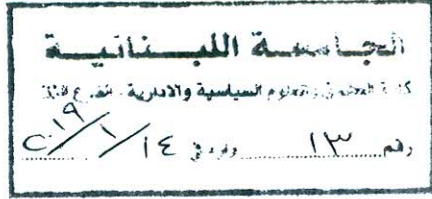 الجامعة اللبنانية
كلية الحقوق والعلوم السياسية والادارية - الفرع
رقم ١٣ ورد في ١٤/١/١٩